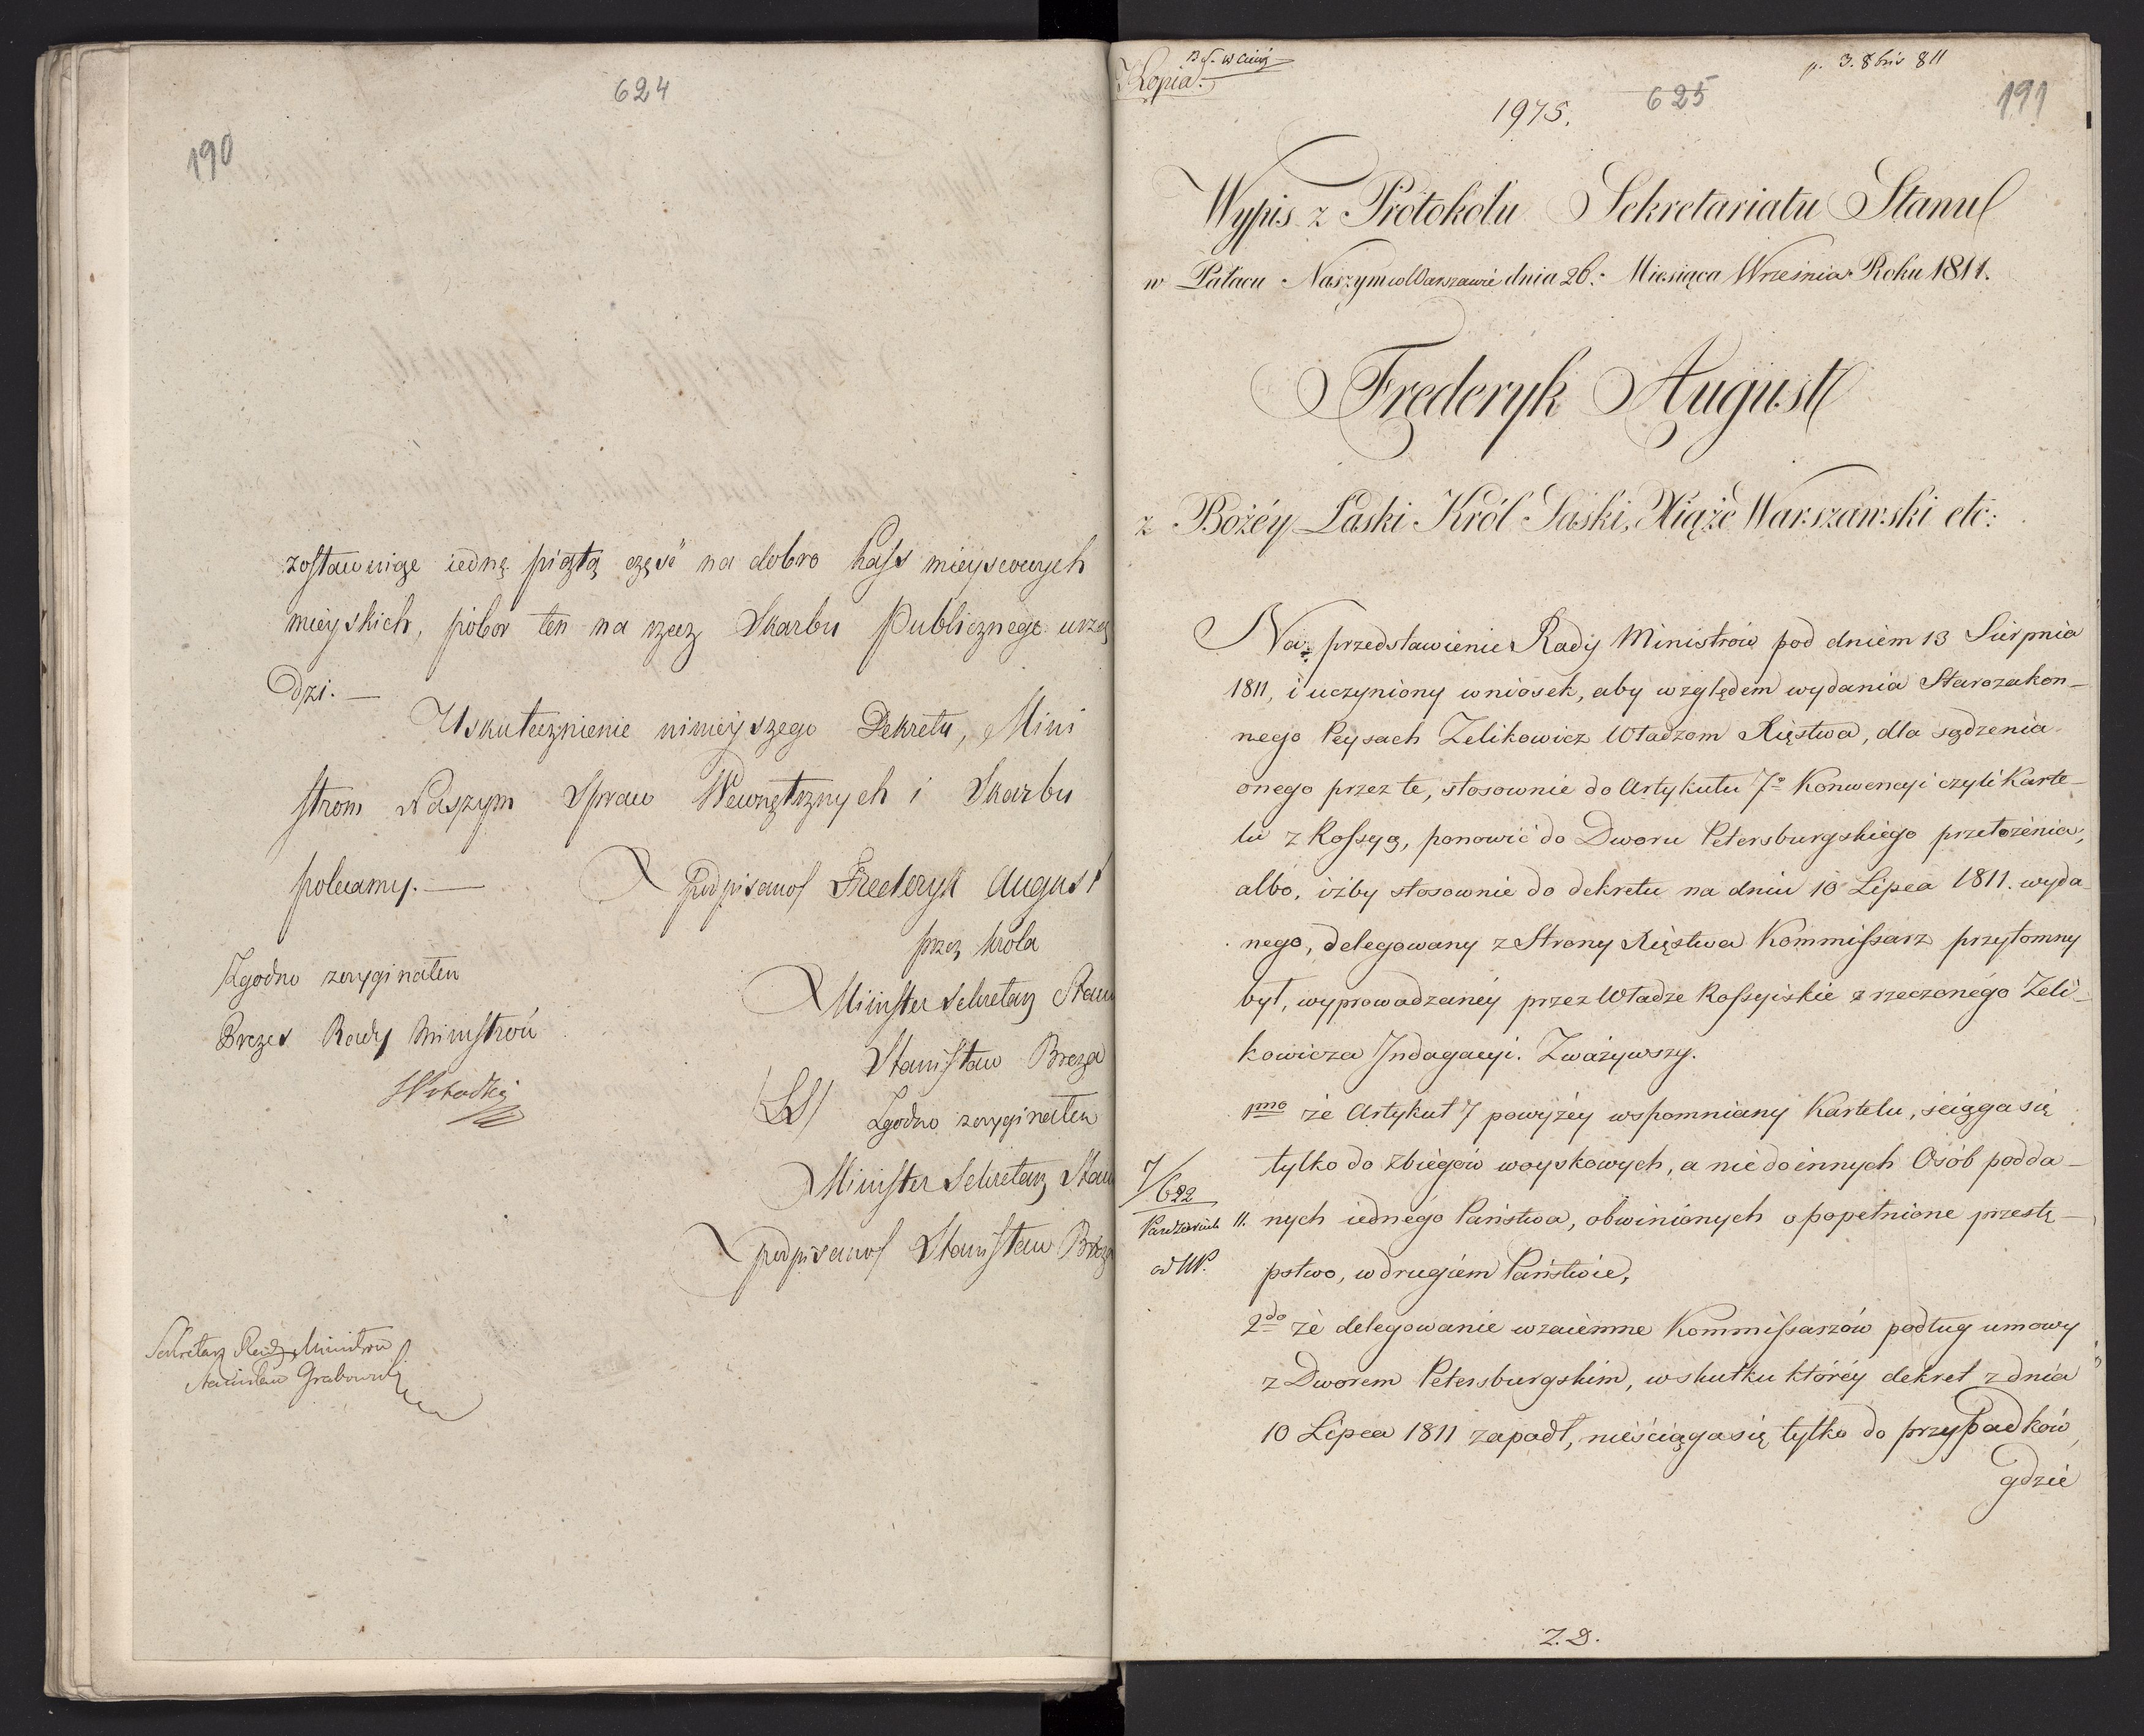 624
190
zostawuiąc iedną piątą część na dobro kass mieyscowych
mieyskich, pobor ten na rzecz Skarbu Publicznego urzą
dzi. —
Uskutecznienie ninieyszego Dekretu, Mini
strom Naszym Spraw Wewnętrznych i Skarbu
polecamy. —
podpisano/ Frederyk August
przez Króla
Minister Sekretarz Stanu
Stanisław Breza
(LS) Zgodno z oryginałem
Minister Sekretarz Stanu
podpisano/ Stanisław Breza
Zgodno z oryginałem
Prezes Rady Ministrów
Sekretarz Rady Ministrów
Stanisław Grabowski
Kopia.
p. 3. 8bris 811
1975.
625
191
Wypis z Protokółu Sekretariatu Stanu
w Pałacu Naszym w Warszawie dnia 26. Miesiąca Września Roku 1811.
Frederyk August
z Bożéy Łaski Król Saski, Xiąże Warszawski etc:
Na przedstawienie Rady Ministrów pod dniem 13 Sierpnia
1811, i uczyniony wniosek, aby względem wydania Starozakon-
nego Peysach Zelikowicz Władzom Xięstwa, dla sądzenia
onego przez te, stosownie do Artykułu 7o Konwencyi czyli Karte-
lu z Rossyą, ponowić do Dworu Petersburgskiego przełożenia,
albo, iżby stosownie do dekretu na dniu 10 Lipca 1811. wyda-
nego, delegowany z Strony Xięstwa Kommissarz przytomny
był, wyprowadzanéy przez Władze Rossyiskie z rzeczonego Zeli-
kowicza Indagacyi. Zważywszy.
1mo że Artykuł 7 powyżéy wspomniany Kartelu, ściąga się
tylko do zbiegów woyskowych, a nie do innych Osób podda-
nych iednego Państwa, obwinionych o popełnione przestę-
pstwo, w drugiem Państwie,
7/622
Października 11.
od MP.
2do że delegowanie wzaiemne Kommissarzów podług umowy
z Dworem Petersburgskim, w skutku któréy dekret z dnia
10 Lipca 1811 zapadł, nie ściąga się tylko do przypadków,
gdzie
Z.D.